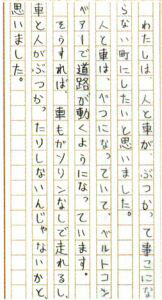 わたしは、人と車が、ぶつかって事こにな
らない町にしたいと思いました。
人と車は、べつになっていて、ベルトコン
ベアーで道路が動くようになっています。
そうすれば、車もガソリンなしで走れるし、
車と人がぶつかったりしないんじゃないかと、
思いました。